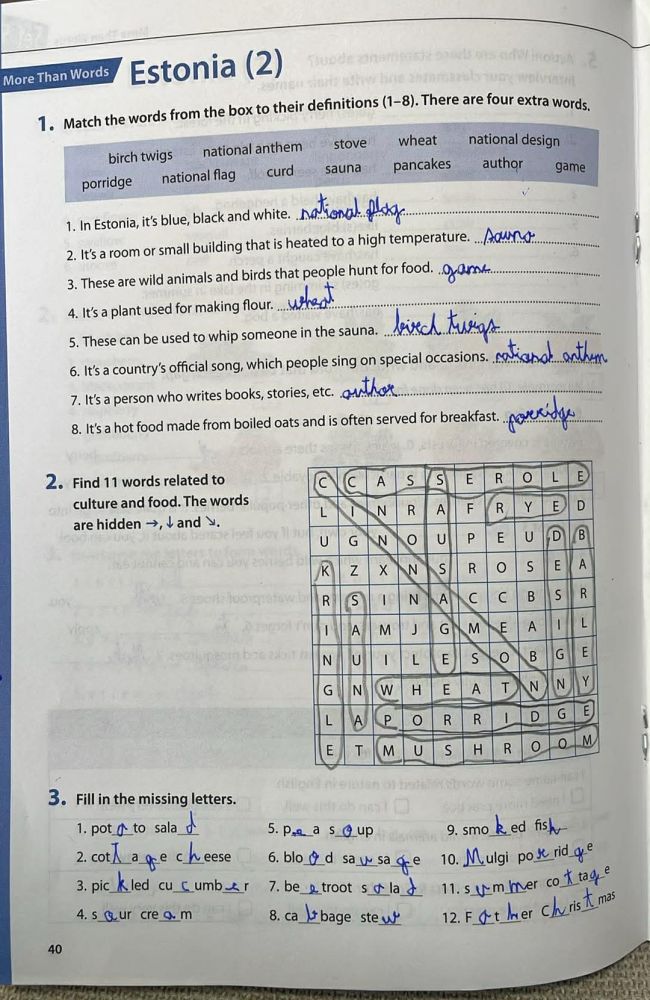 More Than Words Estonia (2)
1. Match the words from the box to their definitions (1–8). There are four extra words.
birch twigs national anthem stove wheat national design
porridge national flag curd sauna pancakes author game
1. In Estonia, it's blue, black and white. national flag
2. It's a room or small building that is heated to a high temperature. sauna
3. These are wild animals and birds that people hunt for food. game
4. It's a plant used for making flour. wheat
5. These can be used to whip someone in the sauna. birch twigs
6. It's a country's official song, which people sing on special occasions. national anthem
7. It's a person who writes books, stories, etc. author
8. It's a hot food made from boiled oats and is often served for breakfast. porridge
2. Find 11 words related to
culture and food. The words
are hidden →, ↓ and ↘.
C C A S S E R O L E
L I N R A F R Y E D
U G N O U P E U D B
K Z X N S R O S E A
R S I N A C C B S R
I A M J G M E A I L
N U I L E S O B G E
G N W H E A T N N Y
L A P O R R I D G E
E T M U S H R O O M
3. Fill in the missing letters.
1. potato salad
2. cottage cheese
3. pickled cucumber
4. sour cream
5. pea soup
6. blood sausage
7. beetroot salad
8. cabbage stew
9. smoked fish
10. Mulgi porridge
11. summer cottage
12. Father Christmas
40